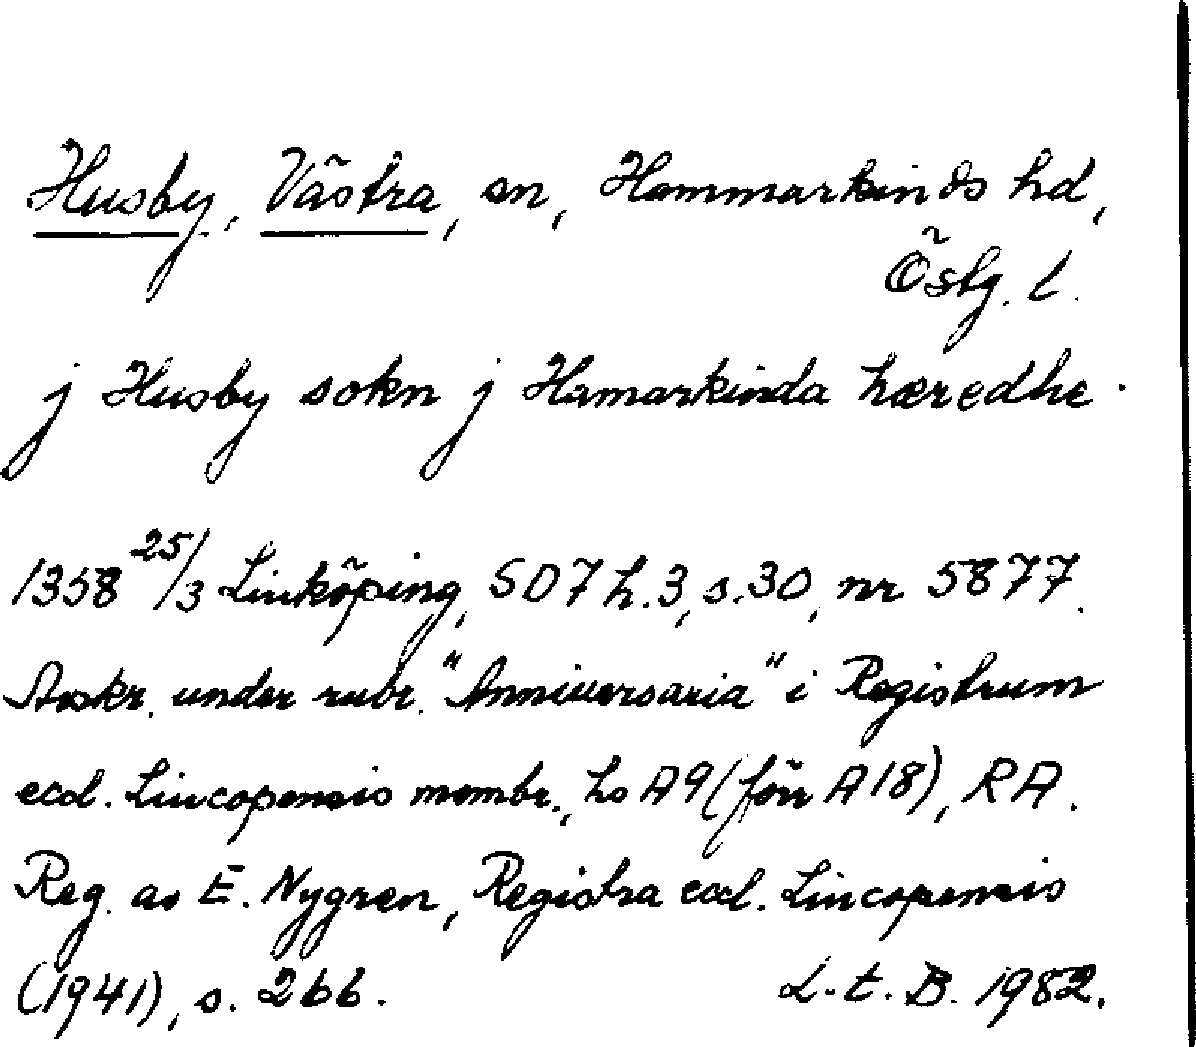 Husby, Västra, sn, Hammarkinds hd,
Östg. l.
j Husby sokn j Hamarkinda hæredhe.
1358 25/3 Linköping, SD 7 h. 3, s. 30, nr 5877.
Avskr. under rubr. "Anniversaria" i Registrum
eccl. Lincopensis membr., hs A9 (förr A 18), RA.
Reg. av E. Nygren, Registra eccl. Lincopensis
(1941), s. 266. L. t. B. 1982.